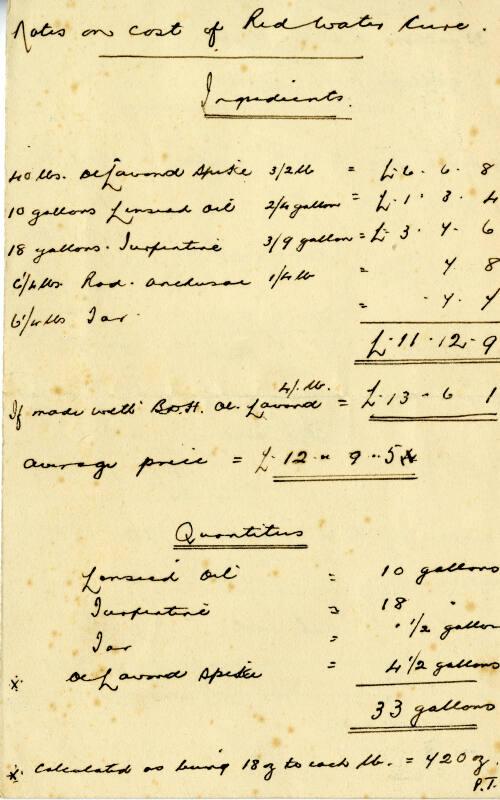 Notes on cost of Red Water Cure.
Ingredients.
40 lbs. Ol Lavand Spike 3/2 lb = £6. 6. 8
10 gallons Linseed Oil 2/4 gallon = £1. 3. 4
18 gallons. Turpentine 3/9 gallon = £ 3. 4. 6
6 1/4 lbs Rad. Anchusae 1/4 lb = 4. 8
6 1/4 lbs Tar. = . 4. 4
£. 11. 12. 9
4/. lb.
If made with B.D.H. Ol. Lavand = £. 13 " 6 1
average price = £. 12 " 9 " 5
Quantities
Linseed Oil = 10 gallons
Turpentine = 18 "
Tar = 1/2 gallon
x Ol Lavand Spike = 4 1/2 gallons
33 gallons
x. Calculated as being 18 oz to each lb. = 720 oz.
P.T.